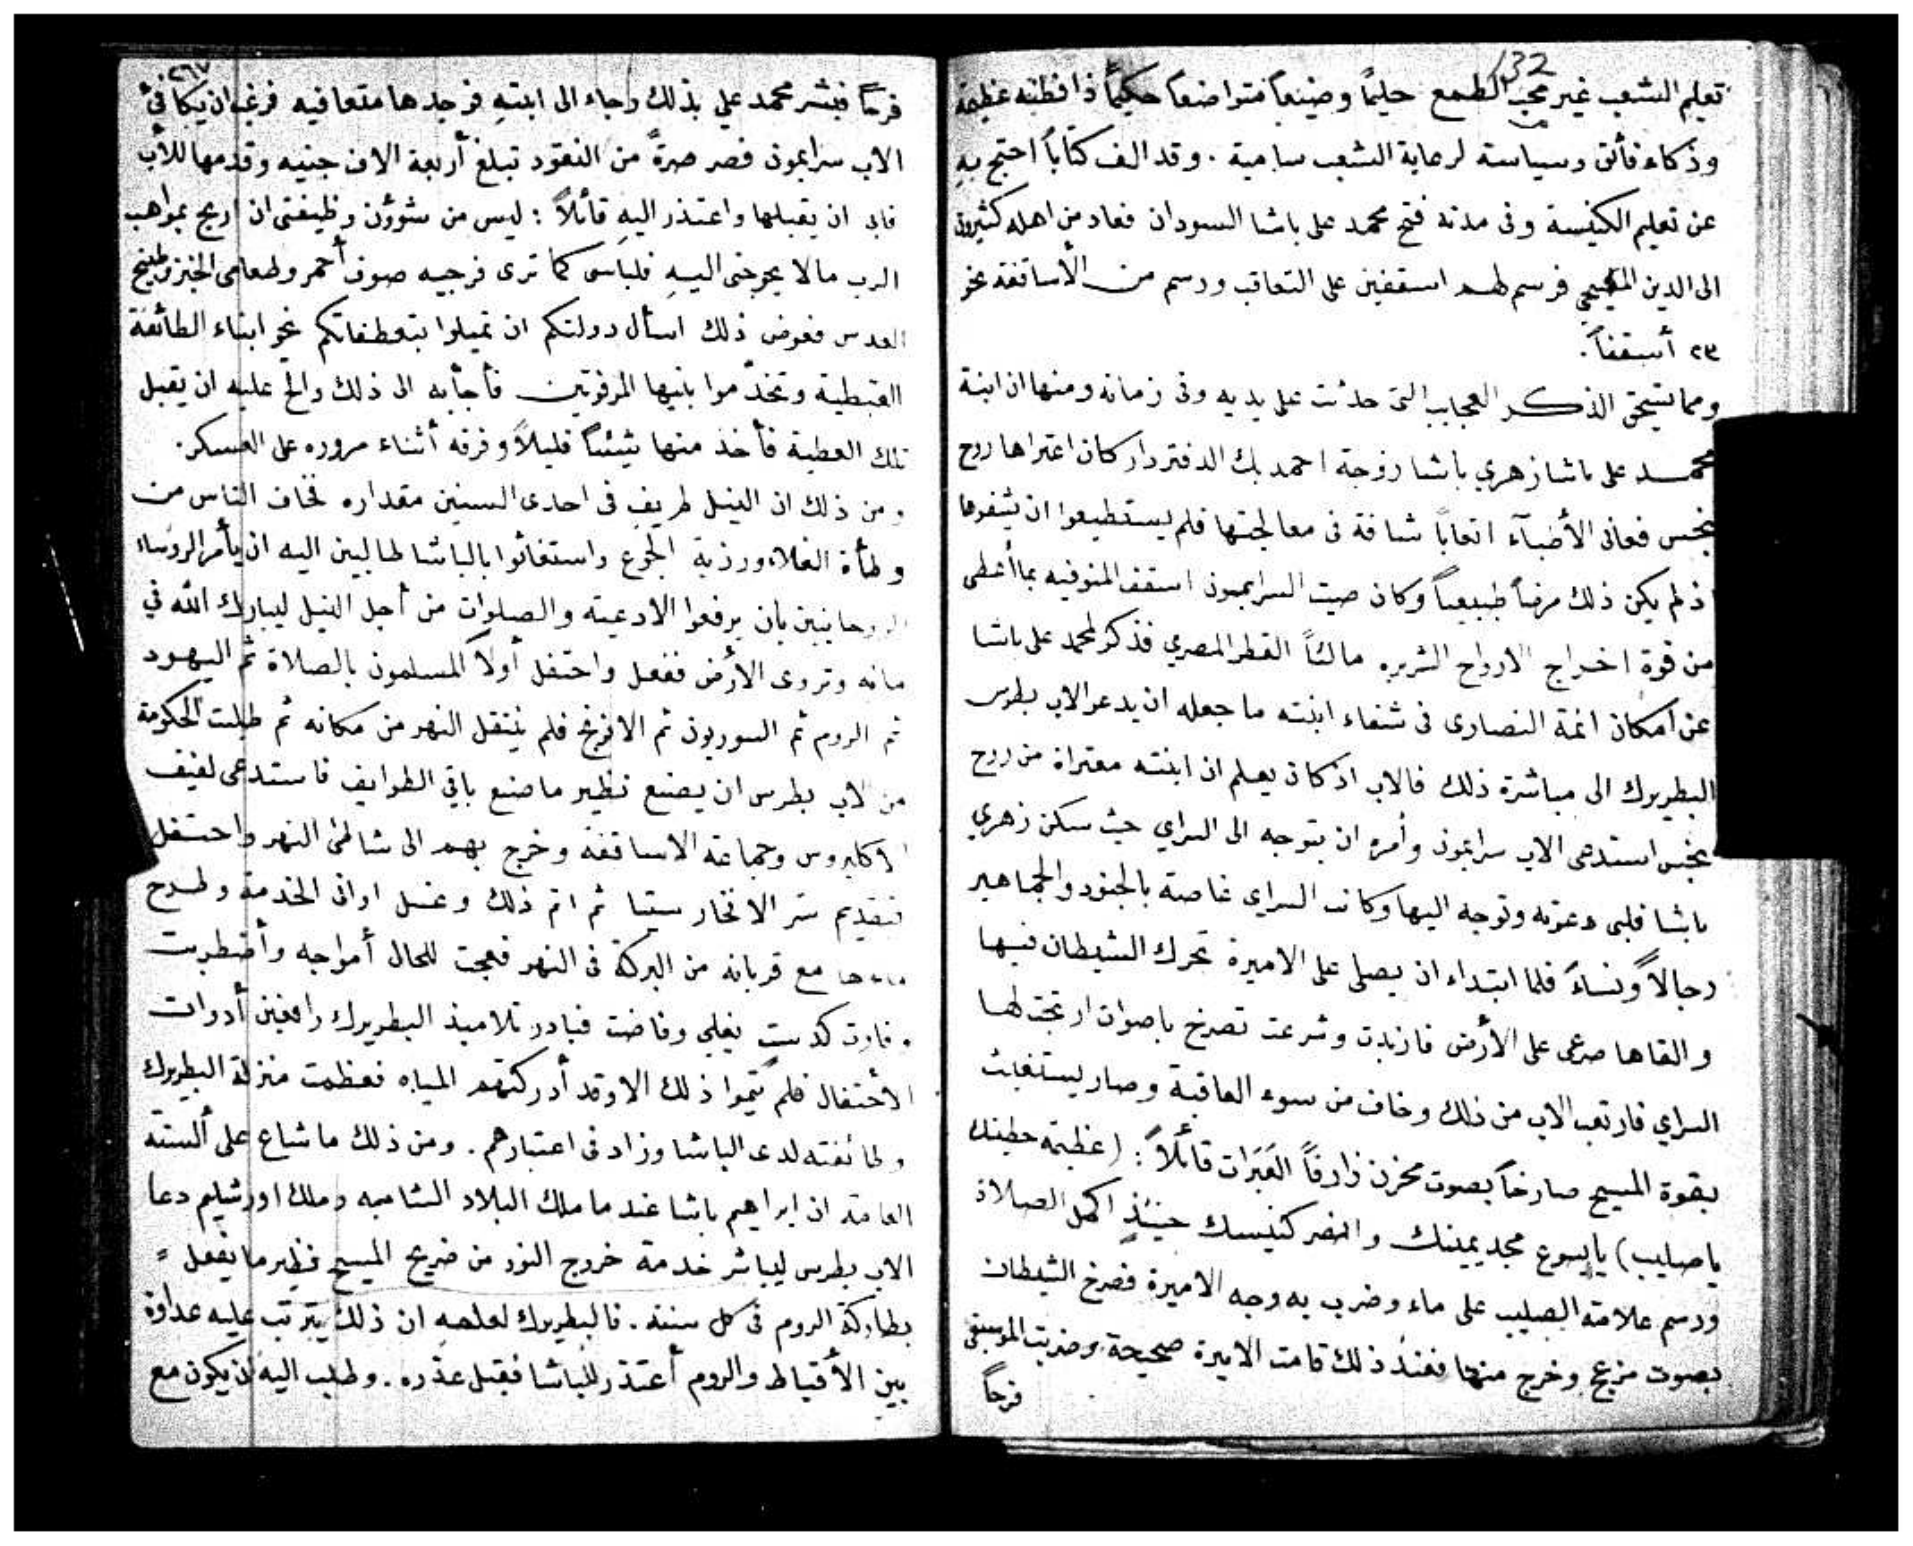 132
تعليم الشعب غير محب الطمع حليمًا وضيعاً متواضعاً حكيمًا ذا فطنه عظيمة
وذكاء فائق وسياسة لرعاية الشعب سامية . وقد الف كتاباً احتج به
عن تعليم الكنيسة وفى مدته فتح محمد على باشا السودان فعاد من اهله كثيرون
الى الدين المسيحي فرسم لهم اسقفين على التعاقب ورسم من الأساقفة نحو
٢٣ أسقفاً .
ومما يستحق الذكر العجايب التى حدثت على يديه وفى زمانه ومنها ان ابنة
محمد على باشا زهري باشا زوجة احمد بك الدفتردار كان اعتراها روح
نجس فعانى الأطبآء اتعاباً شاقة فى معالجتها فلم يستطيعوا ان يشفوها
اذ لم يكن ذلك مرضاً طبيعياً وكان صيت السرايمون اسقف المنوفيه بما أعطى
من قوة اخراج الارواح الشريره مالئاً القطر المصري فذكر لمحمد على باشا
عن امكان ائمة النصارى فى شفاء ابنته ما جعله ان يدعو الاب بطرس
البطريرك الى مباشرة ذلك فالاب اذ كان يعلم ان ابنته معتراة من روح
نجس استدعى الاب سرايمون وأمره ان يتوجه الى السراي حيث سكن زهري
باشا فلبى دعوته وتوجه اليها وكانت السراي غاصة بالجنود والجماهير
رجالاً ونساءً فلما ابتداء ان يصلى على الاميرة تحرك الشيطان فيها
والقاها صرعى على الأرض فازبدت وشرعت تصرخ باصوات ارتجت لها
السراي فارتعب الاب من ذلك وخاف من سوء العاقبة وصار يستغيث
بقوة المسيح صارخاً بصوت محزن زارفاً العَبَرات قائلاً : ( عظيمة
يا صليب ) يا يسوع مجد يمينك وانصر كنيسك حينئذٍ اكمل الصلاة
ورسم علامة الصليب على ماء وضرب به وجه الاميرة فصرخ الشيطان
بصوت مزعج وخرج منها فعند ذلك قامت الاميرة صحيحة وضربت الموسيقى
فرحاً
٢٦٧
فرحاً فبشر محمد علي بذلك وجاء الى ابنتهِ فوجدها متعافيه فرغب ان يكافئ
الاب سرايمون فصر صرةً من النقود تبلغ أربعة الاف جنيه وقدمها للأب
فابى ان يقبلها واعتذر اليهِ قائلاً : ليس من شؤون وظيفتى ان اربح بمواهب
الرب مالا يحوجنى اليهِ فلباسى كما ترى فرجيه صوف أحمر وطعامى الخبز وطبيخ
العدس فعوض ذلك اسأل دولتكم ان تميلوا بتعطفاتكم نحو ابناء الطائفة
القبطية وتخدّموا بنيها المرفوتين فأجابه الى ذلك والح عليه ان يقبل
تلك العطية فأخذ منها شيئاً قليلاً وفرقه أثناء مروره على العسكر .
ومن ذلك ان النيل لم يفِ فى احدى السنين مقداره فخاف الناس من
وطأة الغلاء ورزية الجوع واستغاثوا بالباشا طالبين اليه ان يأمر الروساء
الروحانيين بان يرفعوا الادعية والصلوات من أجل النيل ليبارك الله في
مائه وتروى الأرض ففعل واحتفل أولاً المسلمون بالصلاة ثم اليهود
ثم الروم ثم السوريون ثم الافرنج فلم ينتقل النهر من مكانه ثم طلبت الحكومة
من الاب بطرس ان يصنع نظير ما صنع باقي الطوايف فاستدعى لفيف
الاكليروس وجماعة الاساقفة وخرج بهم الى شاطئ النهر واحتفل
بتقديم سر الافخارستيا ثم اتم ذلك وغسل اوانى الخدمة وطرح
ماءها مع قربانه من البركة فى النهر فعجت للحال أمواجه وأضطربت
وفارت كدست يغلى وفاضت فبادر تلاميذ البطريرك رافعين أدوات
الأحتفال فلم يتموا ذلك الا وقد أدركتهم المياه فعظمت منزلة البطريرك
وطائفته لدى الباشا وزاد فى اعتبارهم . ومن ذلك ما شاع على ألسنة
العامة ان ابراهيم باشا عند ما ملك البلاد الشاميه وملك اورشليم دعا
الاب بطرس ليباشر خدمة خروج النور من ضريح المسيح نظير ما يفعل =
بطاركة الروم فى كل سنة . فالبطريرك لعلمهِ ان ذلك يترتب عليه عداوة
بين الأقباط والروم أعتذر للباشا فقبل عذره . وطلب اليه ان يكون مع